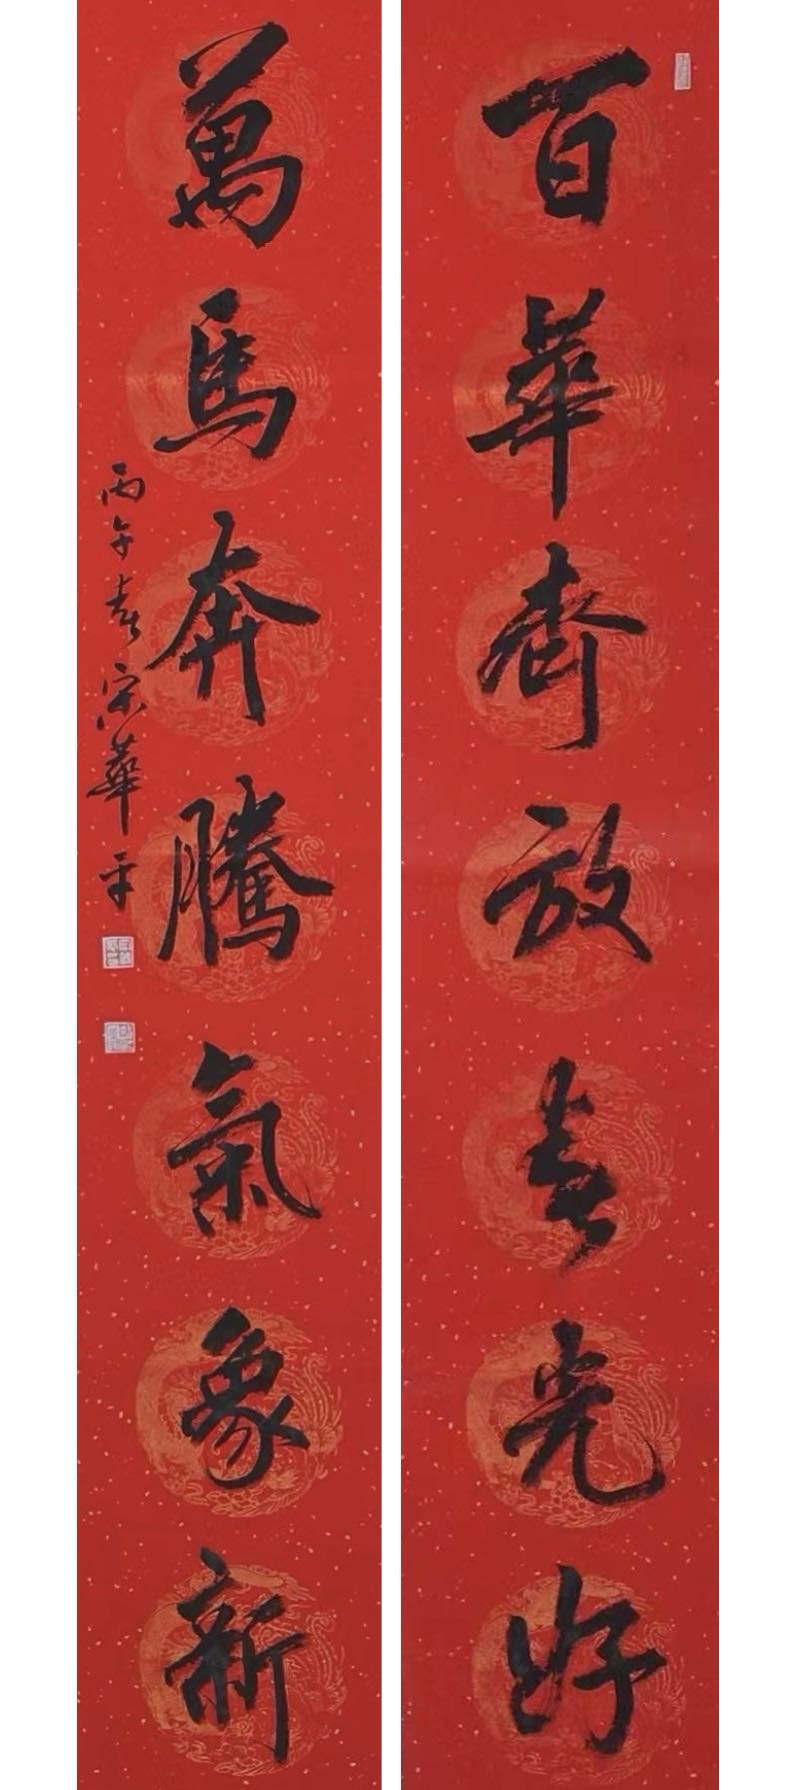 百華齊放春光好
萬馬奔騰氣象新
丙午春宋華平